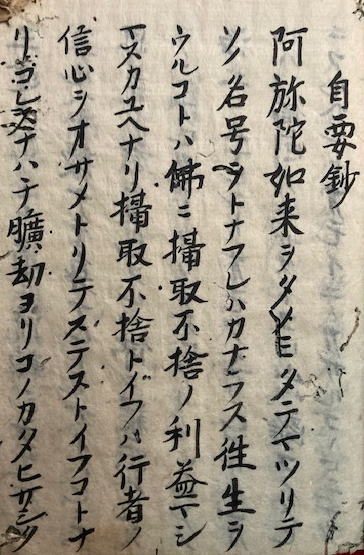 自要鈔
阿弥陀如来ヲタノミタテマツリテ
ソノ名号ヲトナフレハカナラス往生ヲ
ウルコトハ佛ニ攝取不捨ノ利益マシ
マスカユヘナリ攝取不捨トイフハ行者ノ
信心ヲオサメトリテステストイフコトナ
リコレスナハチ曠劫ヨリコノカタヒサシク